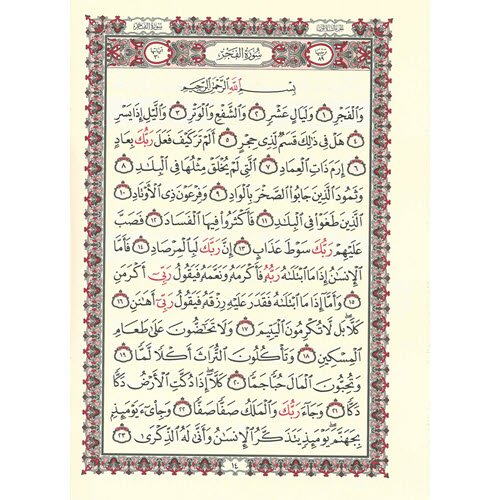 الجزء الثلاثون سورة الفجر
ترتيبها ٨٩ سُورَةُ الفَجْرِ آياتها ٣٠
بِسْمِ اللَّهِ الرَّحْمَٰنِ الرَّحِيمِ
وَالْفَجْرِ ١ وَلَيَالٍ عَشْرٍ ٢ وَالشَّفْعِ وَالْوَتْرِ ٣ وَاللَّيْلِ إِذَا يَسْرِ
٤ هَلْ فِي ذَٰلِكَ قَسَمٌ لِّذِي حِجْرٍ ٥ أَلَمْ تَرَ كَيْفَ فَعَلَ رَبُّكَ بِعَادٍ
٦ إِرَمَ ذَاتِ الْعِمَادِ ٧ الَّتِي لَمْ يُخْلَقْ مِثْلُهَا فِي الْبِلَٰدِ ٨
وَثَمُودَ الَّذِينَ جَابُوا الصَّخْرَ بِالْوَادِ ٩ وَفِرْعَوْنَ ذِي الْأَوْتَادِ ١٠
الَّذِينَ طَغَوْا فِي الْبِلَٰدِ ١١ فَأَكْثَرُوا فِيهَا الْفَسَادَ ١٢ فَصَبَّ
عَلَيْهِمْ رَبُّكَ سَوْطَ عَذَابٍ ١٣ إِنَّ رَبَّكَ لَبِالْمِرْصَادِ ١٤ فَأَمَّا
الْإِنسَٰنُ إِذَا مَا ابْتَلَىٰهُ رَبُّهُ فَأَكْرَمَهُ وَنَعَّمَهُ فَيَقُولُ رَبِّي أَكْرَمَنِ
١٥ وَأَمَّا إِذَا مَا ابْتَلَىٰهُ فَقَدَرَ عَلَيْهِ رِزْقَهُ فَيَقُولُ رَبِّي أَهَٰنَنِ ١٦
كَلَّا بَل لَّا تُكْرِمُونَ الْيَتِيمَ ١٧ وَلَا تَحَٰضُّونَ عَلَىٰ طَعَامِ
الْمِسْكِينِ ١٨ وَتَأْكُلُونَ التُّرَاثَ أَكْلًا لَّمًّا ١٩
وَتُحِبُّونَ الْمَالَ حُبًّا جَمًّا ٢٠ كَلَّا إِذَا دُكَّتِ الْأَرْضُ دَكًّا
دَكًّا ٢١ وَجَاءَ رَبُّكَ وَالْمَلَكُ صَفًّا صَفًّا ٢٢ وَجِايْءَ يَوْمَئِذٍ
بِجَهَنَّمَ يَوْمَئِذٍ يَتَذَكَّرُ الْإِنسَٰنُ وَأَنَّىٰ لَهُ الذِّكْرَىٰ ٢٣
١٤